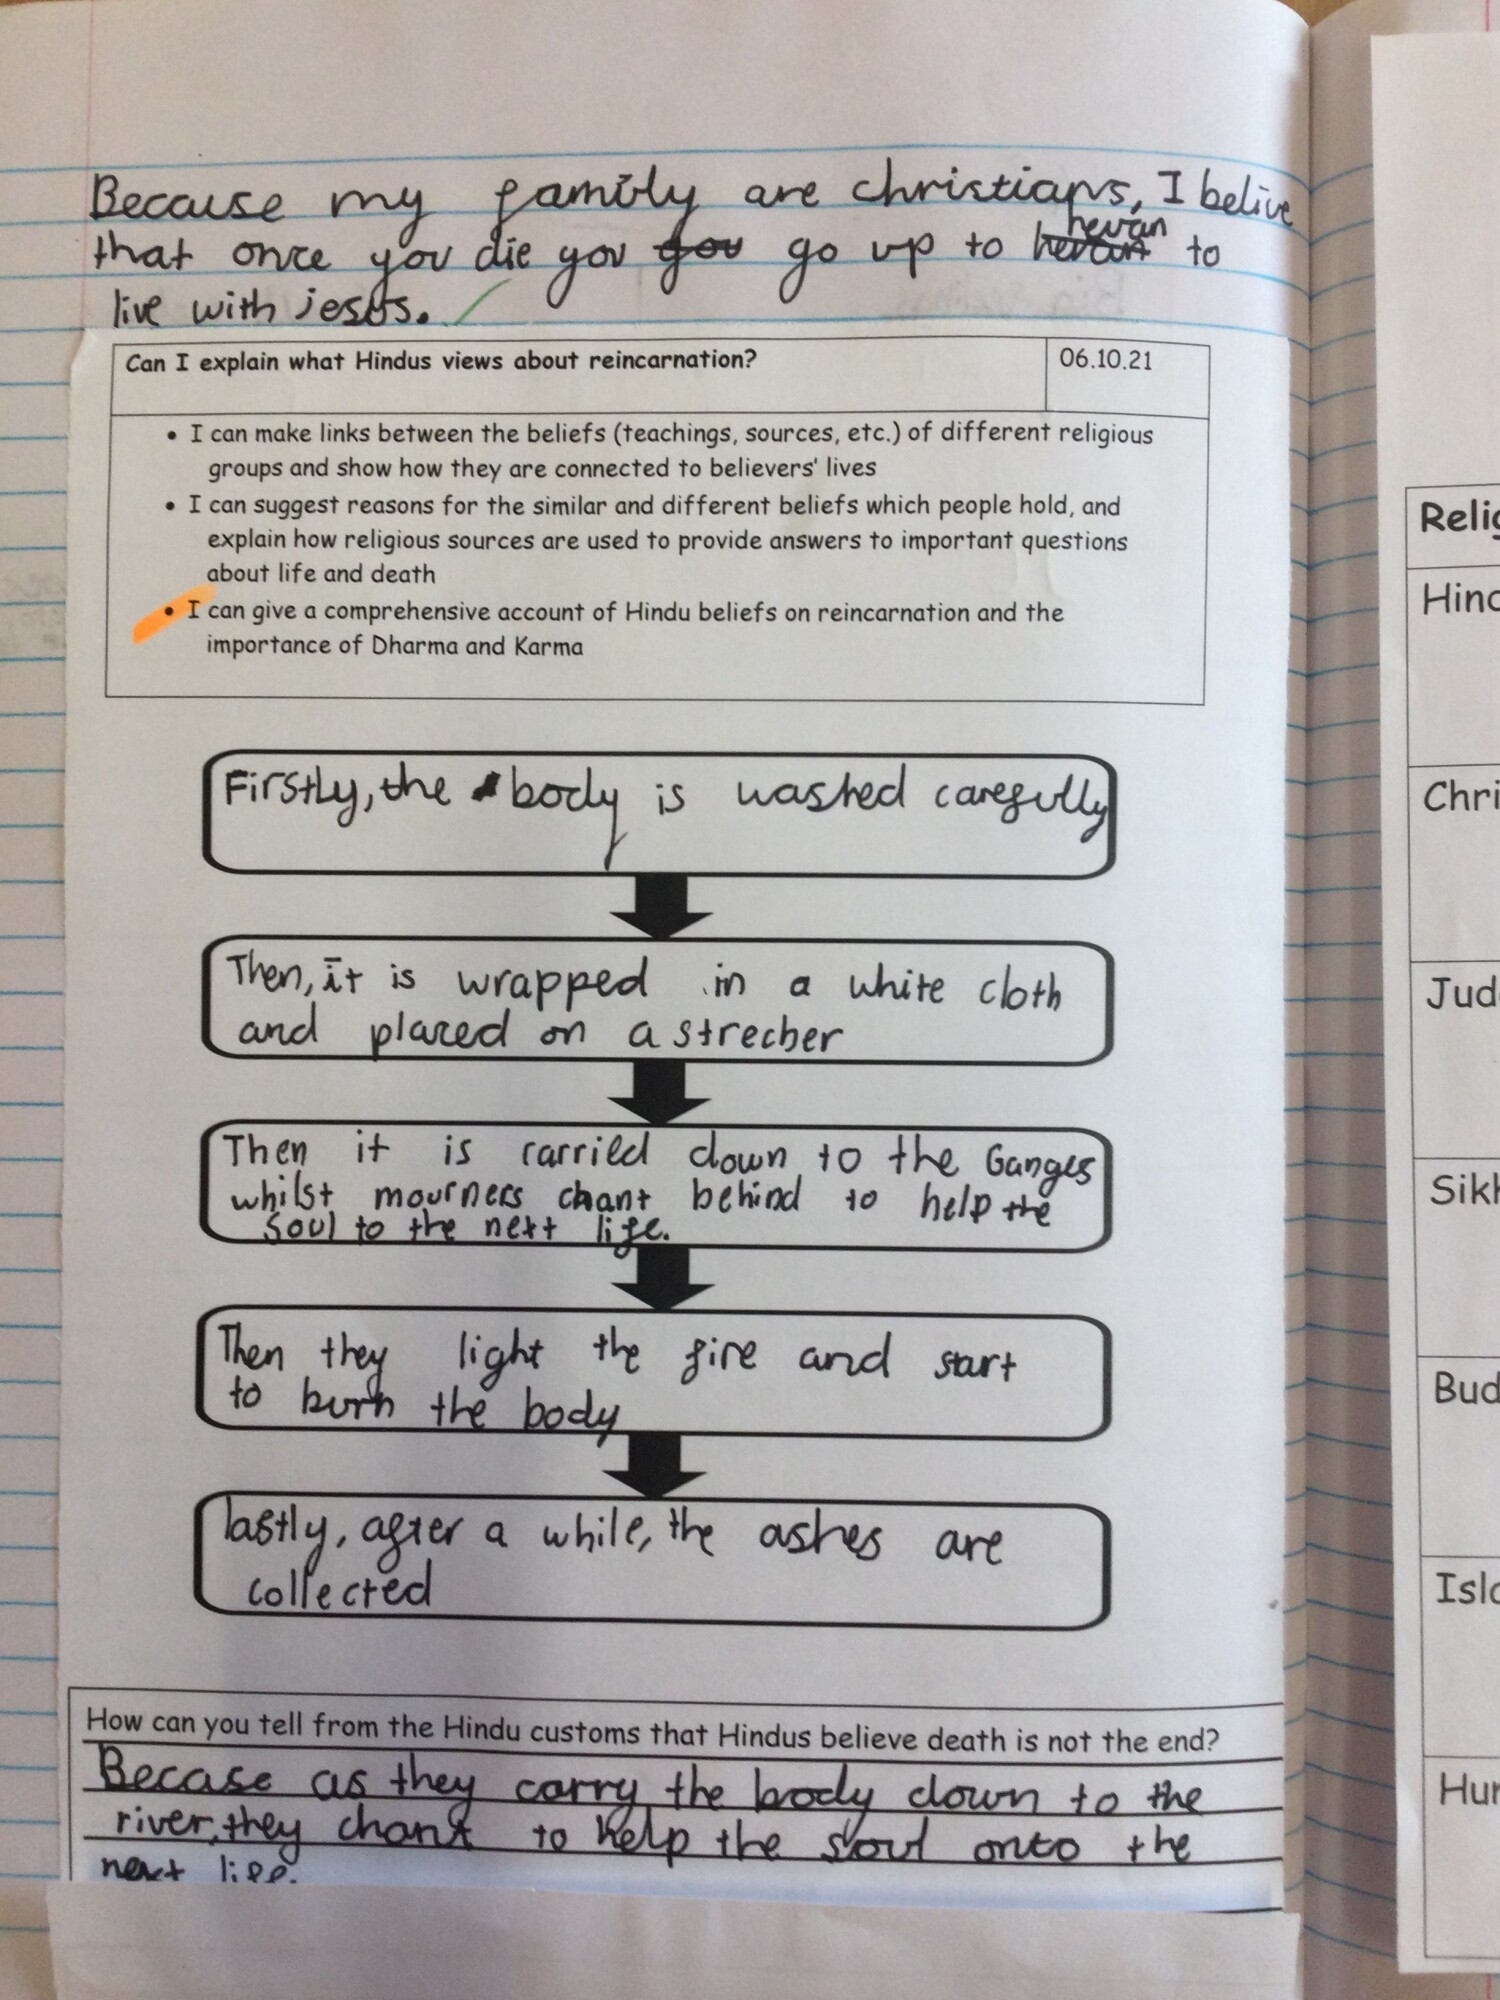 Because my family are christians, I belive
that once you die you you go up to hevan to
live with jesus.
Can I explain what Hindus views about reincarnation?
06.10.21
• I can make links between the beliefs (teachings, sources, etc.) of different religious
groups and show how they are connected to believers' lives
• I can suggest reasons for the similar and different beliefs which people hold, and
explain how religious sources are used to provide answers to important questions
about life and death
• I can give a comprehensive account of Hindu beliefs on reincarnation and the
importance of Dharma and Karma
Firstly, the body is washed carefully
Then, it is wrapped in a white cloth
and placed on a strecher
Then it is carried down to the Ganges
whilst mourners chant behind to help the
soul to the next life.
Then they light the fire and start
to burn the body
lastly, after a while, the ashes are
collected
How can you tell from the Hindu customs that Hindus believe death is not the end?
Becase as they carry the body down to the
river, they chant to help the soul onto the
next life.
Relig
Hind
Chri
Jud
Sikh
Bud
Isla
Hum